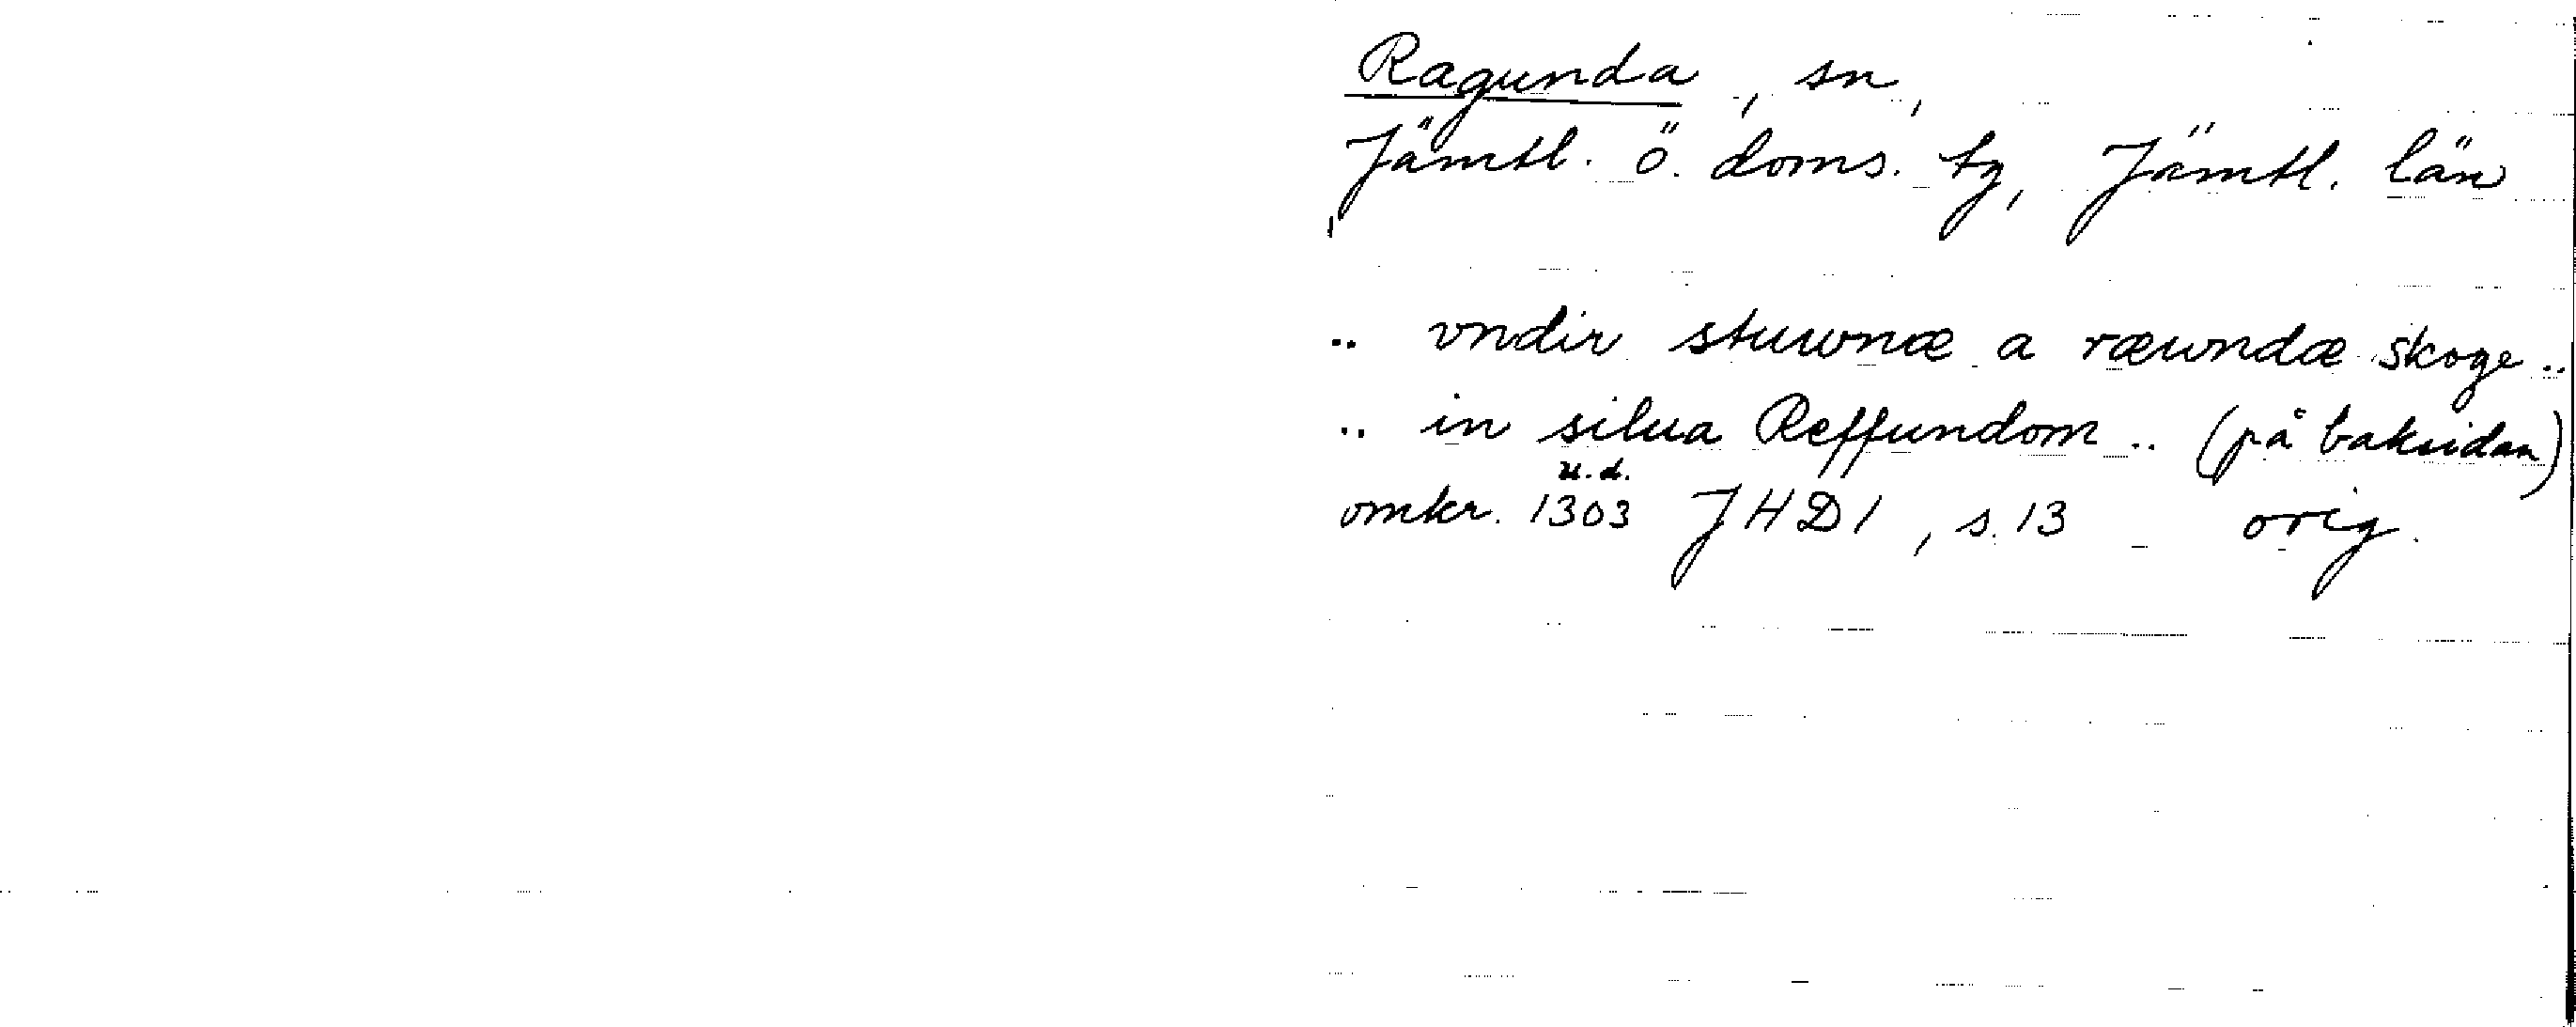 Ragunda, sn,
Jämtl. ö. doms. tg, Jämtl. län
.. vndir stuwnæ a ræwndæ skoge ..
.. in silua Reffundom .. (på baksidan)
u.d.
omkr. 1303 JHD1, s. 13 orig.